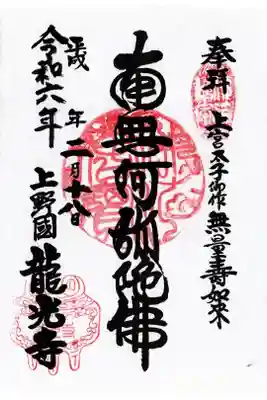 奉拝 上宮太子御作 無量壽如来
南無阿弥陀佛
平成 年二月十八日
令和六年
上野國 龍光寺